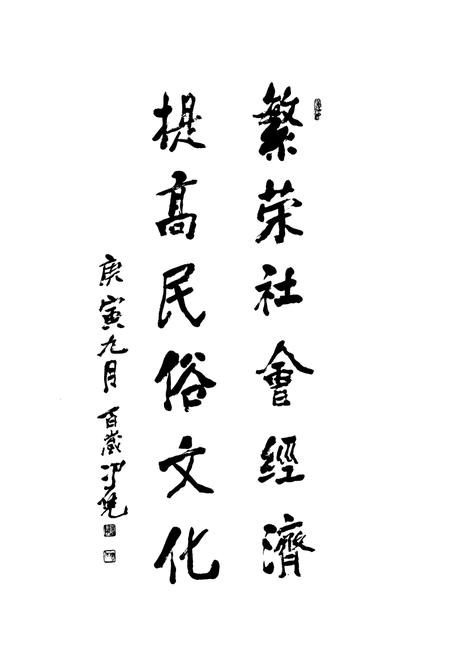 繁荣社會經濟
提高民俗文化
庚寅九月 百歲